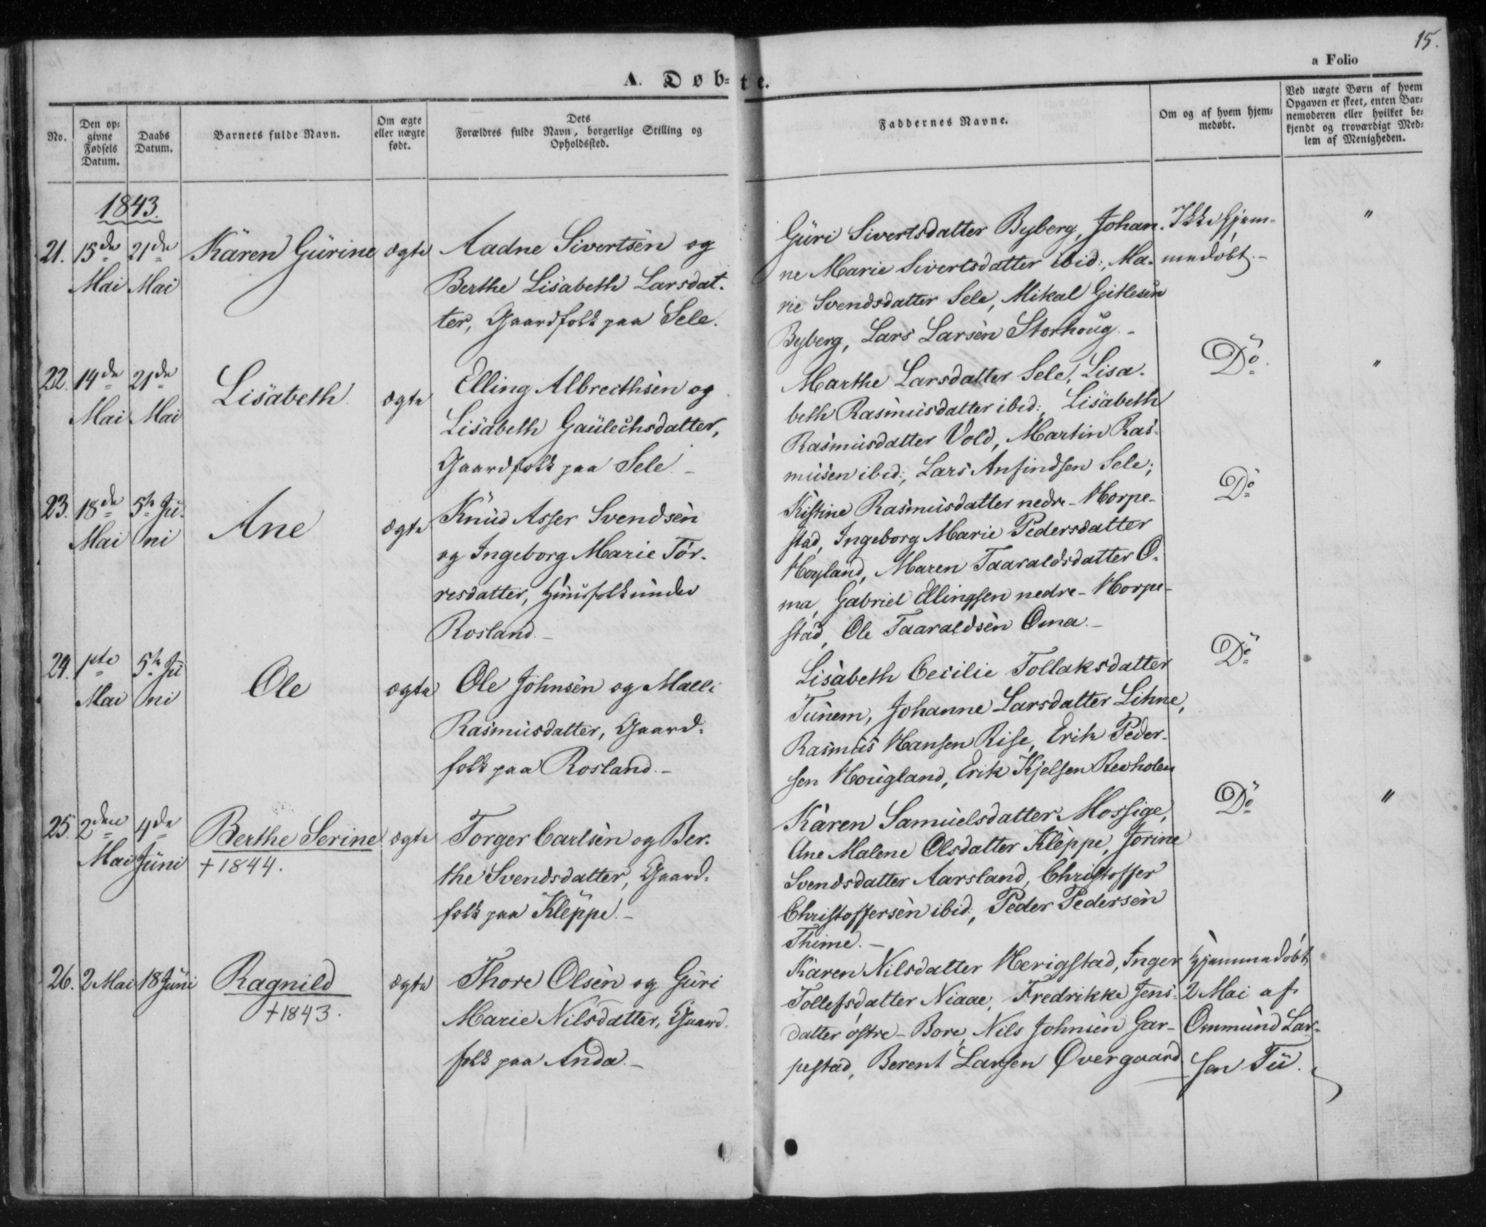 15.
a Folio
A. Døbte.
No.
Den op-
givne
Fødsels
Datum.
Daabs
Datum.
Barnets fulde Navn.
Om ægte
eller uægte
født.
Dets
Forældres fulde Navn, borgerlige Stilling og
Opholdssted.
Faddernes Navne.
Om og af hvem hjem-
medøbt.
Ved uægte Børn af hvem
Opgaven er skeet, enten Bar-
nemoderen eller hvilket be-
kjendt og troværdigt Med-
lem af Menigheden.
1843.
21. 15de Mai
21de Mai
Karen Gurine
ægte
Aadne Sivertsen og
Berthe Lisabeth Larsdat-
ter, Gaardfolk paa Sele.
Guri Sivertsdatter Byberg, Johan-
ne Marie Sivertsdatter ibid., Ma-
rie Svendsdatter Sele, Mikal Gitlesen
Byberg, Lars Larsen Storhoug.-
Ikke hjem-
medøbt.-
"
22. 14de Mai
21de Mai
Lisabeth
ægte
Elling Albrecthsen og
Lisabeth Gaulechsdatter,
Gaardfolk paa Sele -
Marthe Larsdatter Sele, Lisa-
beth Rasmusdatter ibid., Lisabeth
Rasmusdatter Vold, Martin Ras-
musen ibid., Lars Ansindsen Sele;
Do.
"
23. 18de Mai
5te Ju-
ni
Ane
ægte
Knud Asser Svendsen
og Ingeborg Marie Tor-
resdatter, Huusfolk under
Rosland -
Kistine Rasmusdatter nedre-Horpe-
stad, Ingeborg Marie Pedersdatter
Høyland, Maren Taaraldsdatter O-
ma, Gabriel Ellingsen nedre-Horpe-
stad, Ole Taaraldsen Oma.-
Do
24. 1ste Mai
5te Ju
ni
Ole
ægte
Ole Johnsen og Malli
Rasmusdatter, Gaard-
folk paa Rosland.-
Lisabeth Cecilie Tollaksdatter
Tunem, Johanne Larsdatter Lihne,
Rasmus Hansen Rise, Erik Peder-
sen Hougland, Erik Kjelsen Revholen
Do
25. 2den Mai
4de Juni
Berthe Serine
+ 1844.
ægte
Torger Carlsen og Ber-
the Svendsdatter, Gaard-
folk paa Kleppe.-
Karen Samuelsdatter Mossige,
Ane Malene Olsdatter Kleppe, Jorine
Svendsdatter Aarsland, Christoffer
Christoffersen ibid., Peder Pedersen
Thime.-
Do
"
26. 2 Mai
18 Juni
Ragnild
+1843.
ægte
Thore Olsen og Guri
Marie Nilsdatter, Gaard-
folk paa Anda.-
Karen Nilsdatter Herigstad, Inger
Tollefsdatter Niaae, Fredrikke Jens-
datter østre-Bore, Nils Johnsen Gar-
pestad, Berent Larsen Øvergaard
Hjemmedøbt
2 Mai af
Ommund Lar-
sen Tu.